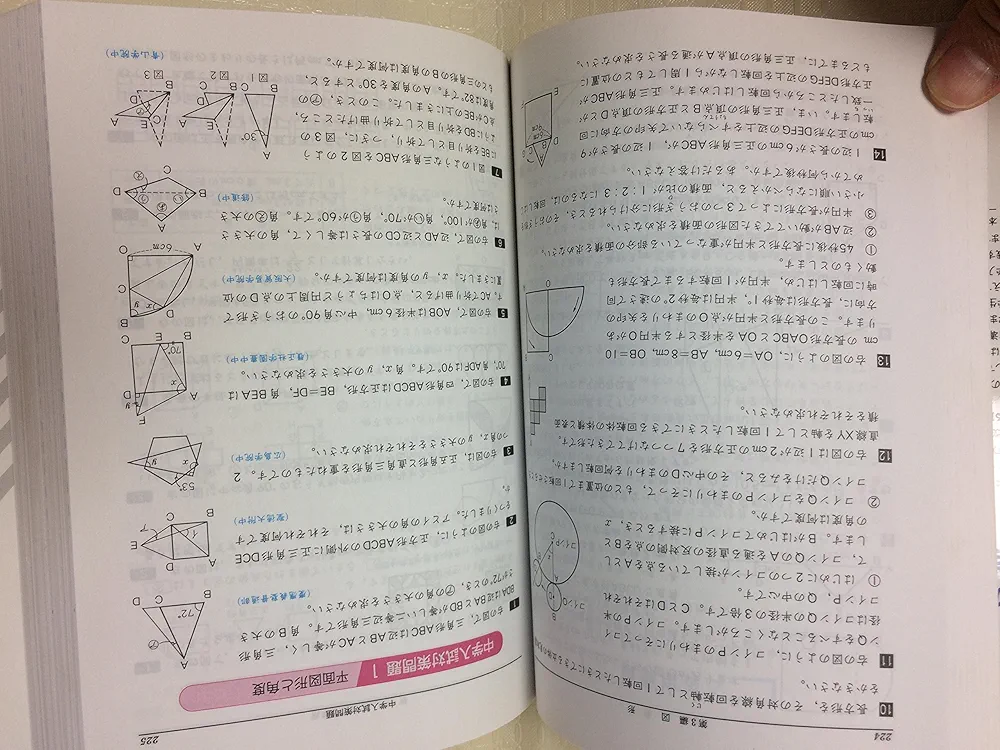 224 第3編 図 形
10 長方形を，その対角線を回転軸として1回転したときにできる立体の見取図
をかきなさい。
11 右の図のように，コインPのまわりにそってコイ
ンQをすべることなくころがします。コインPの半
径はコインQの半径の3倍です。C，Dはそれぞれ
コインP，Qの中心です。
① はじめに2つのコインが接している点をAとし
て，コインQのAを通る直径の反対側の点をBと
します。Bがはじめてコインpに接するとき，x
の角は何度ですか。
② コインQをコインPのまわりにそって，もとの位置まで1回転させます。
コインQだけをみると，その中心Dのまわりを何回転しますか。
コインQ
コインP
A
B
C
D
12 右の図は1辺が2cmの正方形を7つつなげてできた形です。
直線XYを軸として1回転したときにできる回転体の体積と表面
積をそれぞれ求めなさい。
13 右の図のように，OA＝6cm，AB＝8cm，OB＝10
cmの長方形OABCとOAを半径とする半円Oがあ
ります。この長方形と半円が点Oのまわりを矢印の
方向に，長方形は毎秒1°，半円は毎秒2°の速さで同
時に回転しはじめ，半円が1回転するまで長方形も
動くものとします。
① 45秒後に長方形と半円が重なっている部分の面積を求めなさい。
② 辺ABが動いてできた図形の面積を求めなさい。
③ 半円が長方形によって3つのおうぎ形に分けられるとき，そのおうぎ形を
小さい順にならべかえると，面積の比が1：2：3になるのは，回転し
めてから何秒後ですか。あるだけ答えなさい。
14 1辺の長さが6cmの正三角形ABCが，1辺の長さが9
cmの正方形DEFGの辺の上をすべらないで矢印の方向に回
転します。いま，正三角形の頂点Bと正方形の頂点Dとが
一致したところから回転しはじめます。正三角形ABCが
正方形DEFGの辺の上を回転しながら1周してもとの位置に
もどるまでに，正三角形の頂点Aが通る長さを求めなさい。
中学入試対策問題 225
中学入試対策問題 1 平面図形と角度
1 右の図で，三角形ABCはABとACが等しく，三角形
BDAはBAとBDが等しい二等辺三角形です。角Bの大き
さが72°のとき，㋐の角の大きさを求めなさい。
(慶應義塾普通部)
72°
2 右の図のように，正方形ABCDの外側に正三角形DCE
をつくりました。アとイの角の大きさは，それぞれ何度です
か。
(聖徳大附中)
3 右の図は，正五角形と直角三角形を重ねたものです。2
つの角x，yの大きさをそれぞれ求めなさい。
(広島学院中)
53°
x
y
4 右の図で，四角形ABCDは正方形，BE＝DF，角BEAは
70°，角ADFは90°です。角x，yの大きさを求めなさい。
(雲雀丘学園中)
70°
x
y
5 右の図で，AOBは半径6cm，中心角90°のおうぎ形で
す。ACで折り曲げると，点Oはちょうど円周上の点Dの位
置にきました。x，yの角度は何度ですか。
(大阪貿易学院中)
6cm
6 右の図で，辺ADと辺CDの長さは等しくて，角の大きさ
は，角㋐が100°，角㋑が70°，角㋒が60°です。角㋓の大き
さは何度ですか。
(修道中)
7 図1のような三角形ABCを図2のよう
にBEを折り目として折り，つぎに，図3のよう
にBDを折り目として折り曲げたところ，
点Cが BEの上にきました。このとき，㋐の
角度は82°です。Aの角を30°とすると，
もとの三角形のBの角度は何度ですか。
(青山学院中)
30°
図1 図2 図3